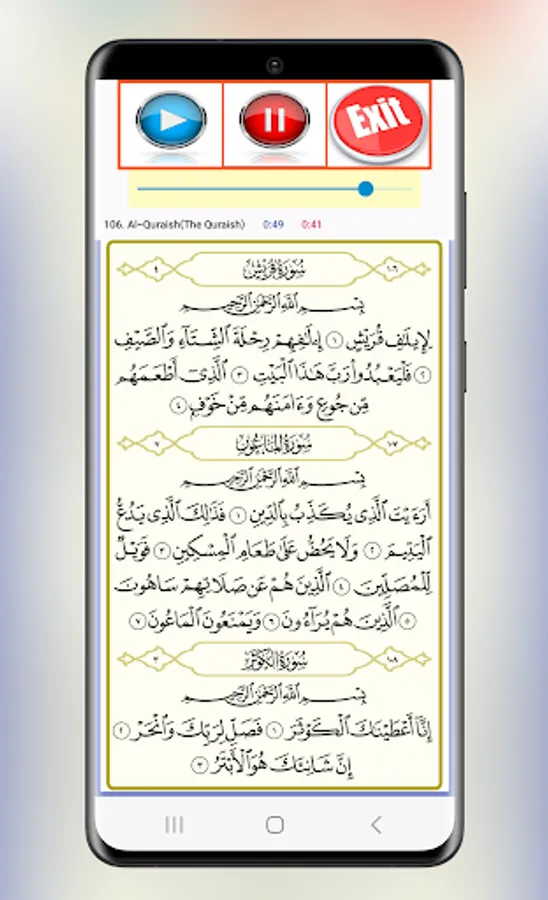 Exit
106. Al-Quraish(The Quraish) 0:49 0:41
١٠٦ سُورَةُ قُرَيْشٍ ٤
بِسْمِ ٱللَّهِ ٱلرَّحْمَٰنِ ٱلرَّحِيمِ
لِإِيلَٰفِ قُرَيْشٍ ١ إِۦلَٰفِهِمْ رِحْلَةَ ٱلشِّتَآءِ وَٱلصَّيْفِ
٢ فَلْيَعْبُدُوا۟ رَبَّ هَٰذَا ٱلْبَيْتِ ٣ ٱلَّذِىٓ أَطْعَمَهُم
مِّن جُوعٍ وَءَامَنَهُم مِّنْ خَوْفٍۭ ٤
١٠٧ سُورَةُ المَاعُونِ ٧
بِسْمِ ٱللَّهِ ٱلرَّحْمَٰنِ ٱلرَّحِيمِ
أَرَءَيْتَ ٱلَّذِى يُكَذِّبُ بِٱلدِّينِ ١ فَذَٰلِكَ ٱلَّذِى يَدُعُّ
ٱلْيَتِيمَ ٢ وَلَا يَحُضُّ عَلَىٰ طَعَامِ ٱلْمِسْكِينِ ٣ فَوَيْلٌ
لِّلْمُصَلِّينَ ٤ ٱلَّذِينَ هُمْ عَن صَلَاتِهِمْ سَاهُونَ
٥ ٱلَّذِينَ هُمْ يُرَآءُونَ ٦ وَيَمْنَعُونَ ٱلْمَاعُونَ ٧
١٠٨ سُورَةُ الكَوْثَرِ ٣
بِسْمِ ٱللَّهِ ٱلرَّحْمَٰنِ ٱلرَّحِيمِ
إِنَّآ أَعْطَيْنَٰكَ ٱلْكَوْثَرَ ١ فَصَلِّ لِرَبِّكَ وَٱنْحَرْ ٢
إِنَّ شَانِئَكَ هُوَ ٱلْأَبْتَرُ ٣